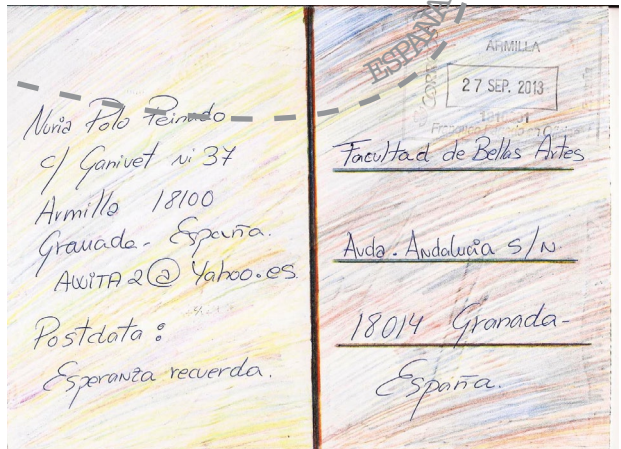 Nuria Polo Peinado
c/ Ganivet nº 37
Armilla 18100
Granada - España.
AWITA2@Yahoo.es
Postdata:
Esperanza recuerda.
ESPAÑA
ARMILLA
27 SEP. 2013
Facultad de Bellas Artes
Avda. Andalucía S/N.
18014 Granada-
España.